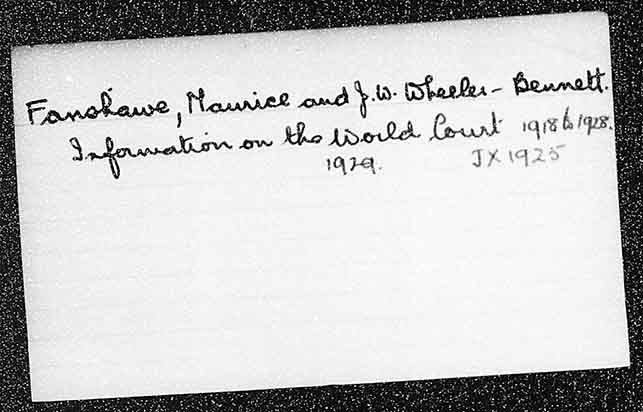 Fanshawe, Maurice and J.W. Wheeler-Bennett.
Information on the World Court 1918 to 1928.
1929. JX 1925